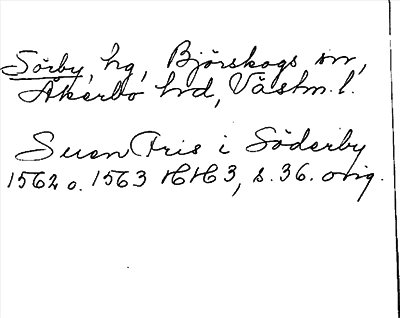 Sörby, hg, Björskogs sn,
Åkerbo hd, Västm. l.
Suen Fris i Söderby
1562 o. 1563 HH 3, s. 36. orig.